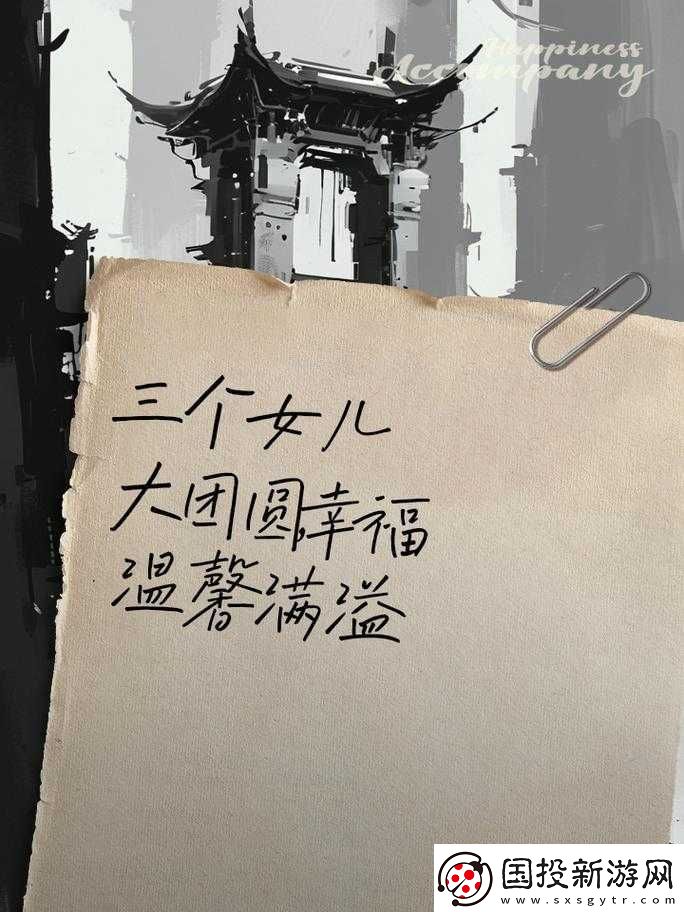 Happiness
Accompany
三个女儿
大团圆,幸福
温馨满溢
国投新游网
www.sxsgytr.com